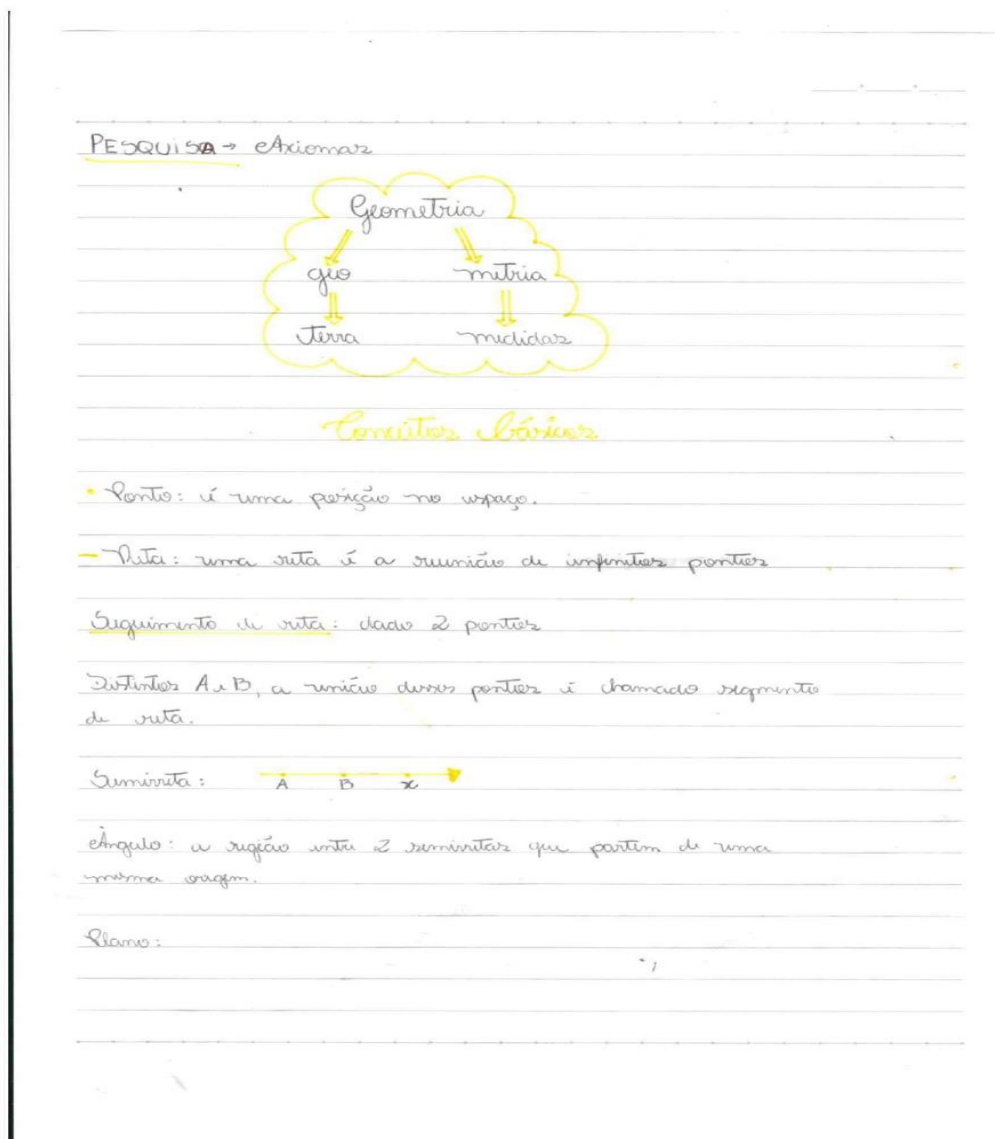 PESQUISA → Axiomas
Geometria
geo metria
terra medidas
Conceitos básicos
• Ponto: é uma posição no espaço.
— Reta: uma reta é a reunião de infinitos pontos
Seguimento de reta: dado 2 pontos
Distintos A e B, a união desses pontos é chamado segmento
de reta.
Semirreta: A B x
Ângulo: a região entre 2 semirretas que partem de uma
mesma origem.
Plano: